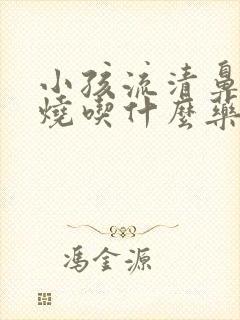 小孩流清鼻
燒喫什麼藥
馮金源